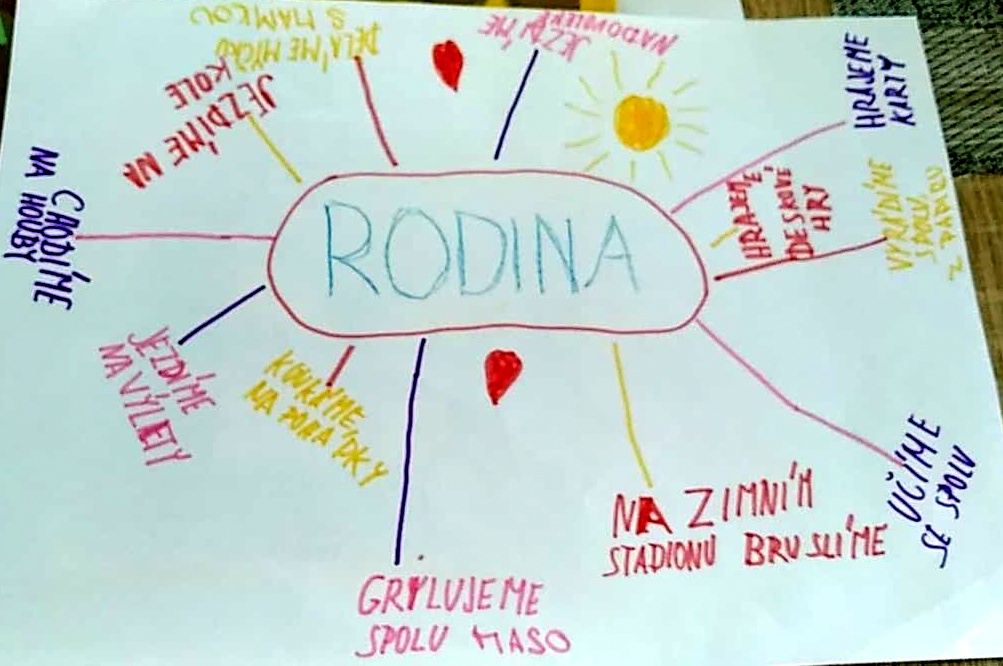 RODINA
JEZDÍME
NA DOVOLENÉ
HRAJEME
KARTY
HRAJEME
DESKOVÉ
HRY
SPOLU
UČÍME
SE SPOLU
NA ZIMNÍM
STADIONU BRUSLÍME
GRYLUJEME
SPOLU MASO
KOUKÁME
NA POHÁDKY
JEZDÍME
NA VÝLETY
CHODÍME
NA HOUBY
JEZDÍME NA
KOLE
DĚLÁME
S MAMKOU